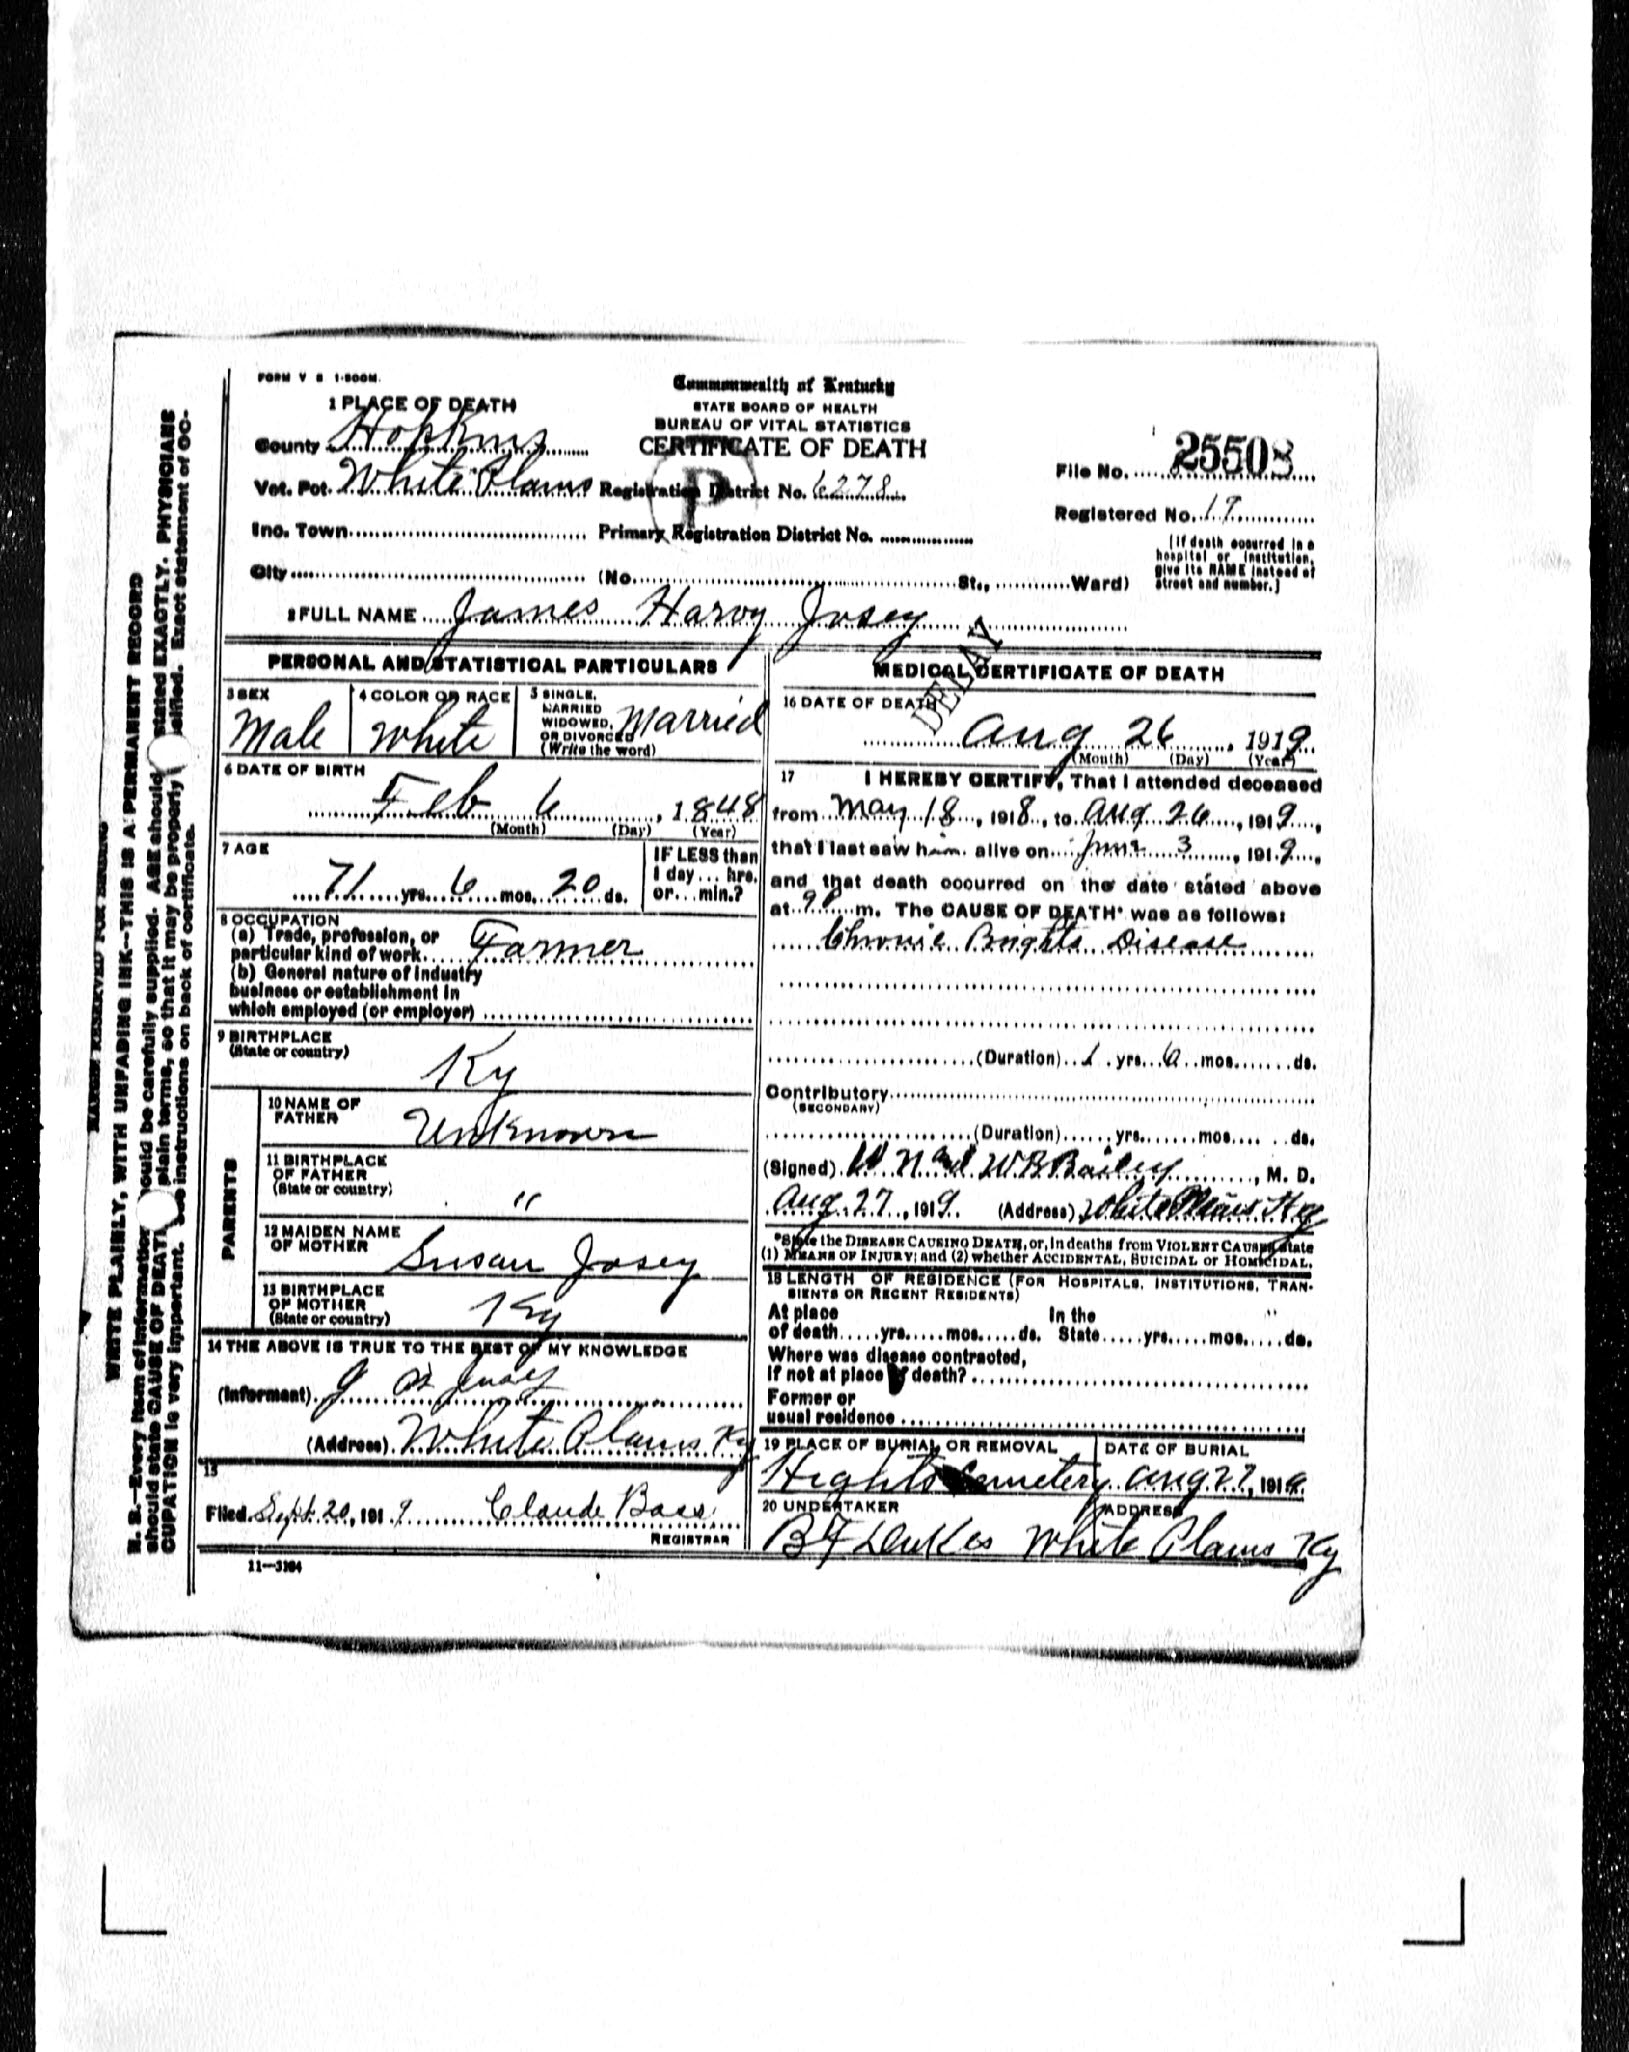 FORM V S 1-500M.
Commonwealth of Kentucky
STATE BOARD OF HEALTH
BUREAU OF VITAL STATISTICS
CERTIFICATE OF DEATH
1 PLACE OF DEATH
County Hopkins
Vot. Pct. White Plains Registration District No. 6278
File No. 25508
Registered No. 19
Inc. Town Primary Registration District No.
City (No. St., Ward)
[If death occurred in a
hospital or institution,
give its NAME instead of
street and number.]
2 FULL NAME James Harvy Josey
P
DELAY
PERSONAL AND STATISTICAL PARTICULARS
3 SEX
Male
4 COLOR OR RACE
White
5 SINGLE,
MARRIED
WIDOWED,
OR DIVORCED
(Write the word)
Married
6 DATE OF BIRTH
Feb 6, 1848
(Month) (Day) (Year)
7 AGE
71 yrs. 6 mos. 20 ds.
IF LESS than
1 day... hrs.
or... min.?
8 OCCUPATION
(a) Trade, profession, or
particular kind of work Farmer
(b) General nature of industry
business or establishment in
which employed (or employer)
9 BIRTHPLACE
(State or country)
Ky
PARENTS
10 NAME OF
FATHER
Unknown
11 BIRTHPLACE
OF FATHER
(State or country)
"
12 MAIDEN NAME
OF MOTHER
Susan Josey
13 BIRTHPLACE
OF MOTHER
(State or country)
Ky
14 THE ABOVE IS TRUE TO THE BEST OF MY KNOWLEDGE
(Informant)
(Address) White Plains Ky
15
Filed Sept. 20, 1919 Claude Bass
REGISTRAR
11—3184
MEDICAL CERTIFICATE OF DEATH
16 DATE OF DEATH
Aug 26, 1919
(Month) (Day) (Year)
17 I HEREBY CERTIFY, That I attended deceased
from May 18, 1918, to Aug 26, 1919,
that I last saw him alive on June 3, 1919,
and that death occurred on the date stated above
at 9 P m. The CAUSE OF DEATH* was as follows:
Chronic Brights Disease
(Duration) 1 yrs. 6 mos. ds.
Contributory
(SECONDARY)
(Duration) yrs. mos. ds.
(Signed) W. B. Bailey, M. D.
Aug 27, 1919 (Address) White Plains Ky
*State the DISEASE CAUSING DEATH, or, in deaths from VIOLENT CAUSES, state
(1) MEANS OF INJURY; and (2) whether ACCIDENTAL, SUICIDAL or HOMICIDAL.
18 LENGTH OF RESIDENCE (FOR HOSPITALS, INSTITUTIONS, TRAN-
SIENTS OR RECENT RESIDENTS)
At place In the
of death yrs. mos. ds. State yrs. mos. ds.
Where was disease contracted,
If not at place of death?
Former or
usual residence
19 PLACE OF BURIAL OR REMOVAL
Hights Cemetery
DATE OF BURIAL
Aug 27, 1919
20 UNDERTAKER
ADDRESS
B F White Plains Ky
MARGIN RESERVED FOR BINDING
WRITE PLAINLY, WITH UNFADING INK—THIS IS A PERMANENT RECORD
N. B.—Every item of information should be carefully supplied. AGE should stated EXACTLY. PHYSICIANS
should state CAUSE OF DEATH plain terms, so that it may be properly sified. Exact statement of OC-
CUPATION is very important. See instructions on back of certificate.